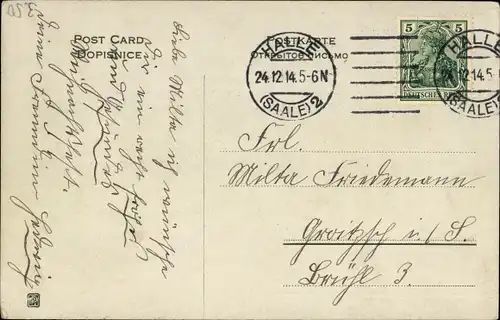 POST CARD
DOPISNICE
POSTKARTE
ОТКРЫТОЕ ПИСЬМО
HALLE
24.12.14.5-6N
(SAALE) 2
5 5
DEUTSCHES REICH
HALLE
.12.14.5-
(SAALE)
Frl.
Milta Friedemann
Groitzsch i/S.
Brühl 3.
Liebe Milta ich wünsche
Dir ein recht
Weihnachtsfest.
Deine Freundin Hedwig